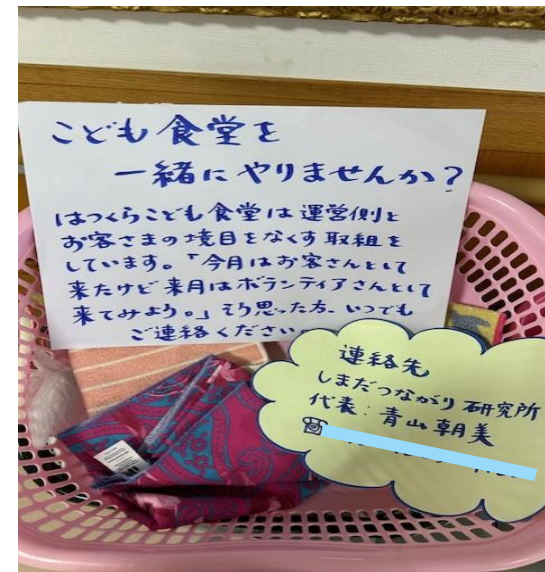 こども食堂を
一緒にやりませんか?
はつくらこども食堂は運営側と
お客さまの境目をなくす取組を
しています。「今月はお客さんとして
来たけど来月はボランティアさんとして
来てみよう。」そう思った方、いつでも
ご連絡ください。
連絡先
しまだつながり研究所
代表:青山朝美
☎